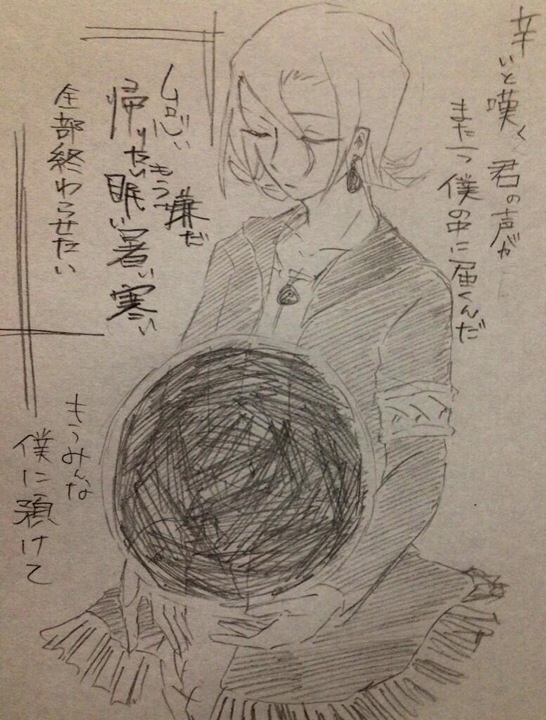 辛いと嘆く君の声が
また一つ僕の中に届くんだ
もう嫌だ
帰りたい眠い暑い寒い
全部終わらせたい
もうみんな
僕に預けて